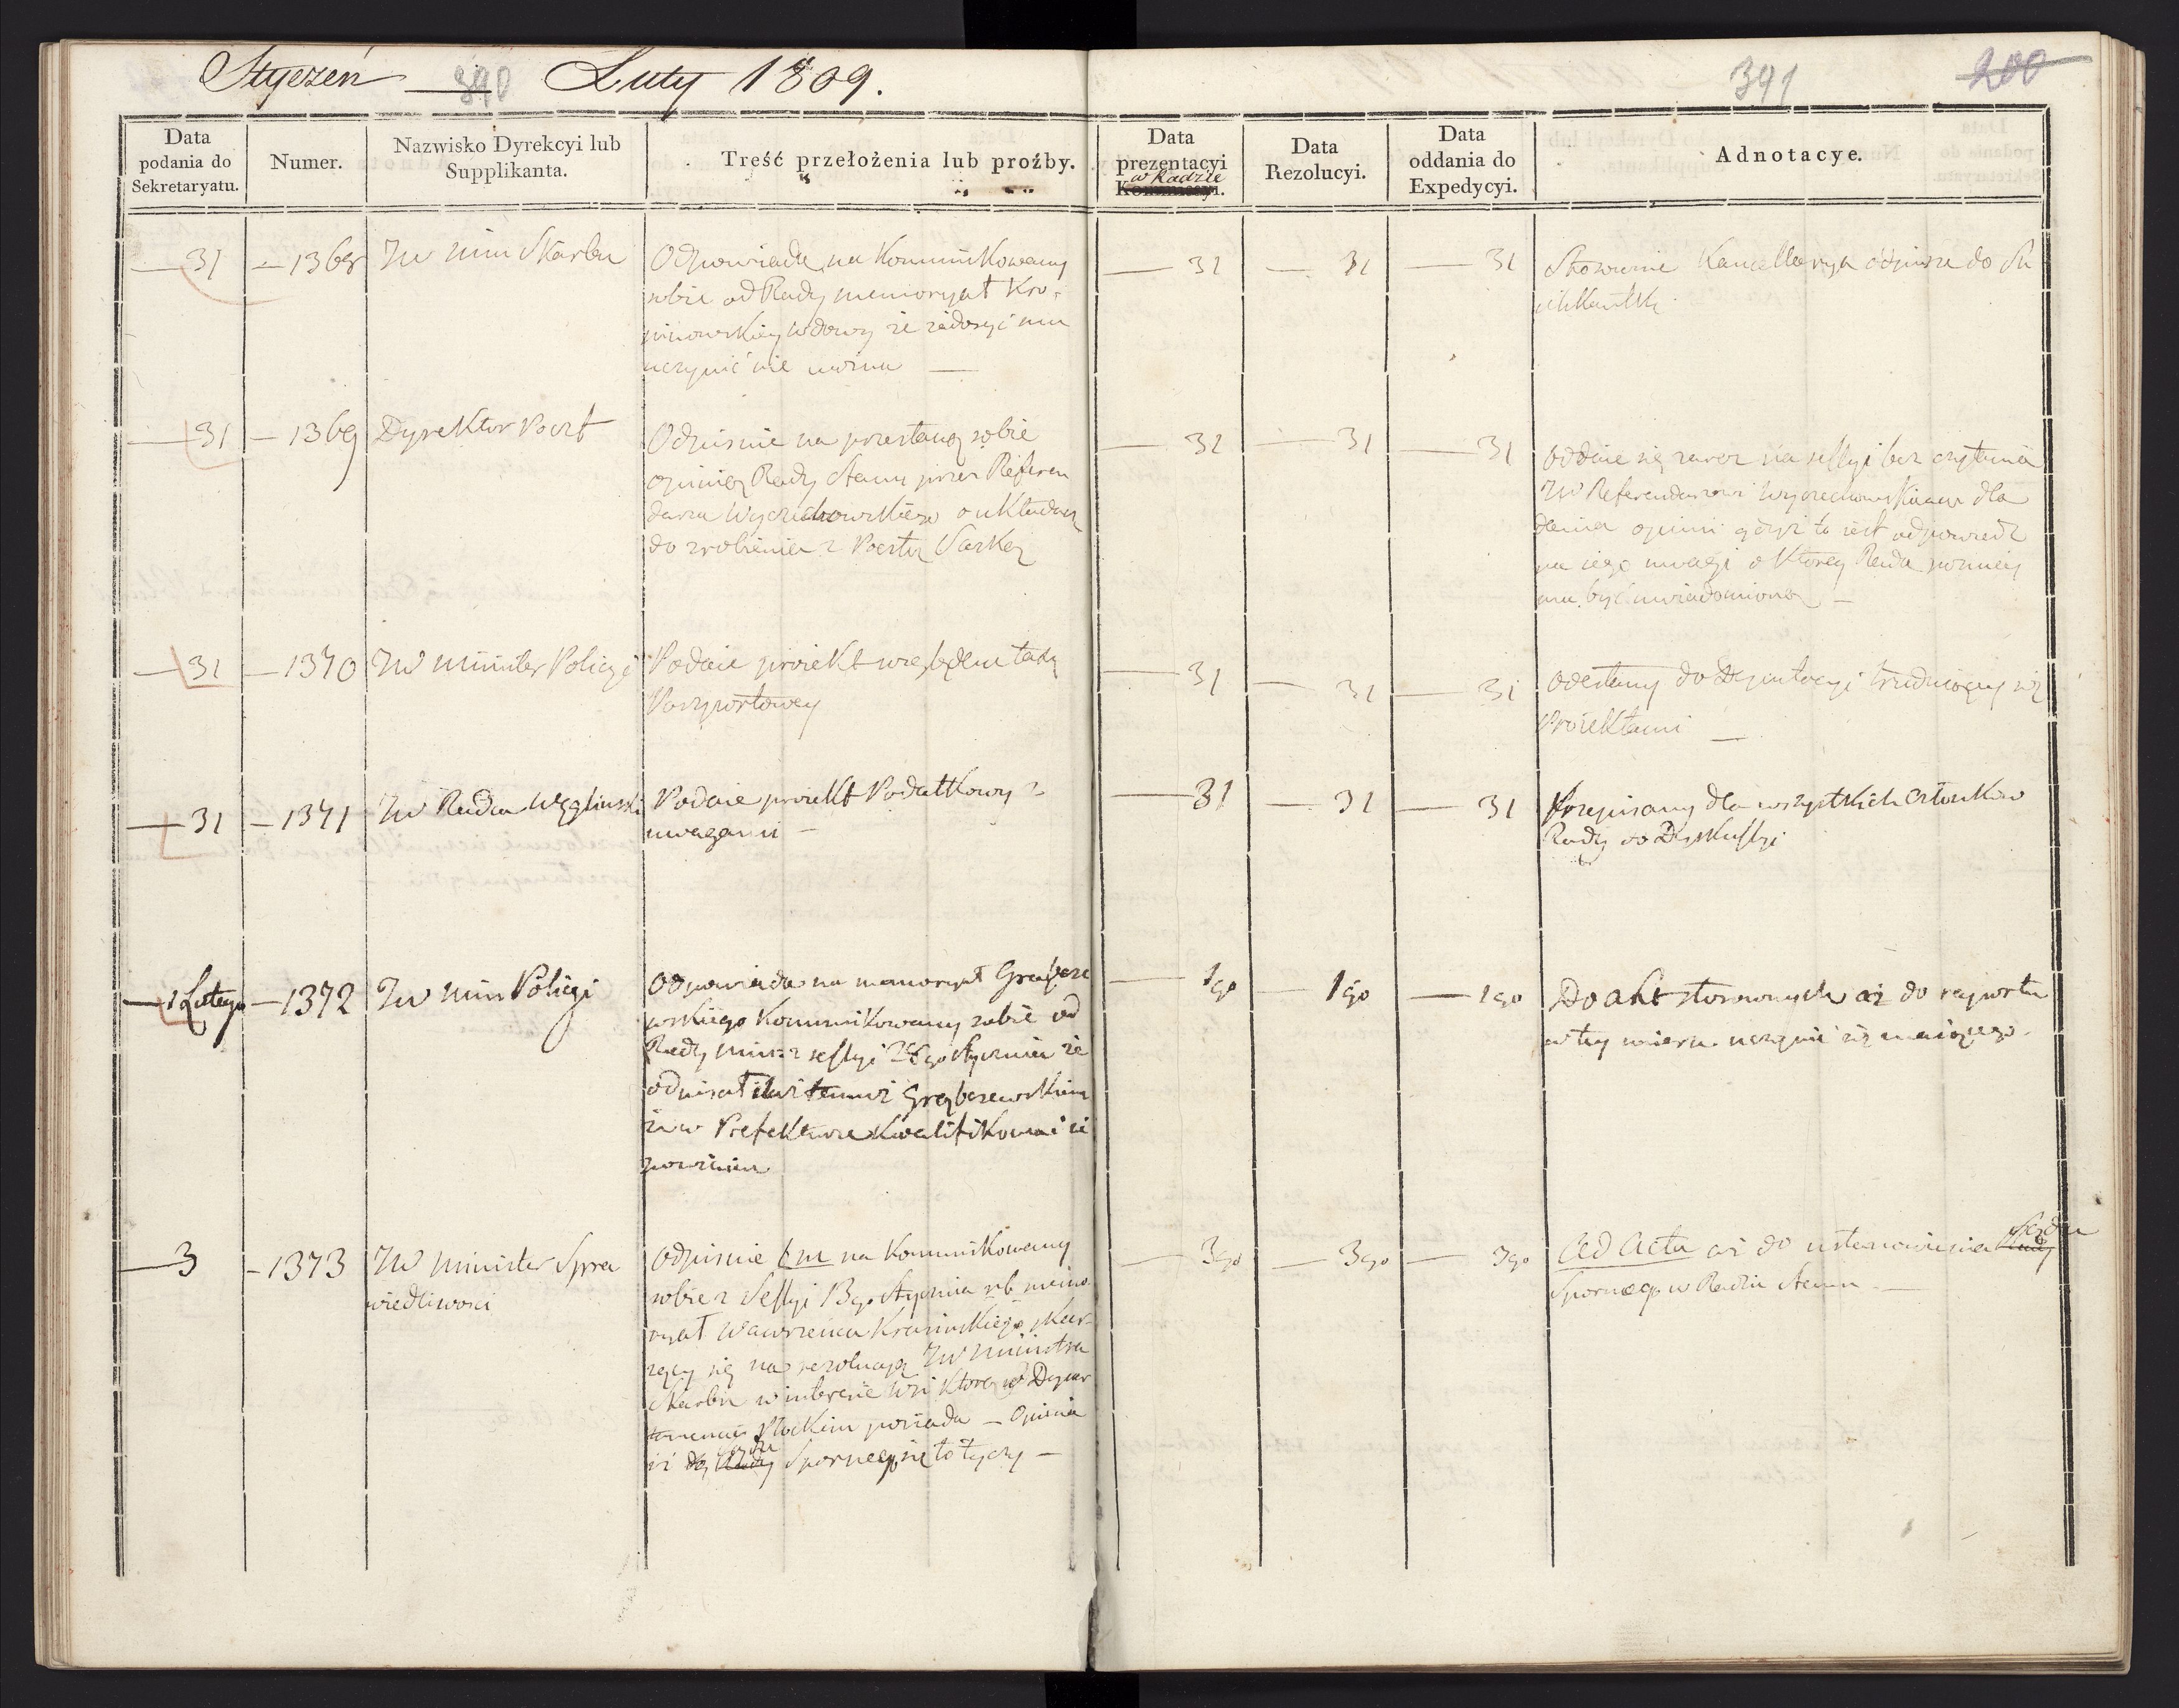 Styczeń — 390 Luty 1809.
391 200
Data podania do Sekretaryatu.
Numer.
Nazwisko Dyrekcyi lub Supplikanta.
Treść przełożenia lub proźby.
Data prezentacyi w Radzie Kommissyi.
Data Rezolucyi.
Data oddania do Expedycyi.
Adnotacye.
— 31 — 1368 JW Min Skarbu
Odpowiada na Kommunikowany
sobie od Rady memoryał Kro-
wdowy że zadosyć
uczynić nie można —
— 31 — 31 — 31
Stosownie Kancellarya odpisze do Su
plikantki
— 31 — 1369 Dyrektor Poczt
Odpisuie na przesłaną sobie
opinią Rady Stanu przez Referen
darza Wyczechowskiego o układach
do zrobienia z Pocztą Saską
— 31 — 31 — 31
oddaie się zaraz na sessyi bez czytania
JW Referendarzowi Wyczechowskiemu dla
dania opinii gdyż to iest odpowiedź
na iego uwagi o którey Rada
ma być uwiadomiona —
— 31 — 1370 JW Minister Policyi
Podaie proiekt względem taxy
Paszportowey
— 31 — 31 — 31
Odesłany do Deputacyi trudniącey się
Proiektami —
— 31 — 1371 JW Radca Węgliński
Podaie proiekt Podatkowy z
uwagami —
— 31 — 31 — 31
Przepisany dla wszystkich członków
Rady do Dyskussyi
— 1 Lutego — 1372 JW Min Policyi
Odpowiada na memoryał Grąbcze
wskiego Kommunikowany sobie od
Rady Min: z sessyi 28go Stycznia że
odpisał temuż Grąbczewskiemu
że w Prefekturze kwalifikować się
powinien
— 1go — 1go — 1go
Do akt stosownych aż do raportu
w tey mierze uczynić się maiącego.
— 3 — 1373 JW Minister Spra
wiedliwości
Odpisuie na Kommunikowany
sobie z Sessyi 13go Stycznia rb memo
ryał Wawrzeńca Krasińskiego skar-
żący się na rezolucyą JW Ministra
Skarbu w interesie Wsi którą w Depar
tamencie Płockim posiada — Opinia
iż do Rady Sądu Spornego się to tyczy —
— 3go — 3go — 3go
Ad Acta aż do ustanowienia Rady Sądu
Spornego w Radzie Stanu —